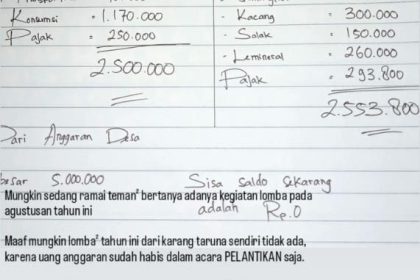 Konsumsi : 1.170.000
Pajak : 250.000
2.500.000
- Kacang : 300.000
- Salak : 150.000
- Lemineral : 260.000
Pajak : 293.800
2.553.800
Dari Anggaran Desa
besar 5.000.000
Sisa Saldo Sekarang
adalah Rp.0
Mungkin sedang ramai teman² bertanya adanya kegiatan lomba pada
agustusan tahun ini
Maaf mungkin lomba² tahun ini dari karang taruna sendiri tidak ada,
karena uang anggaran sudah habis dalam acara PELANTIKAN saja.